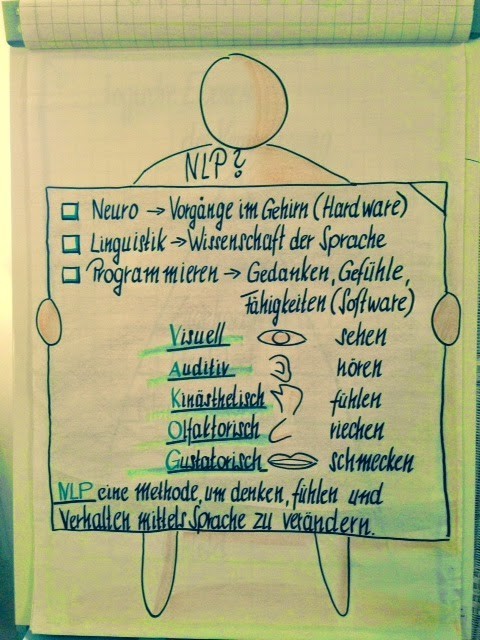 NLP?
Neuro → Vorgänge im Gehirn (Hardware)
Linguistik → Wissenschaft der Sprache
Programmieren → Gedanken, Gefühle,
Fähigkeiten (Software)
Visuell sehen
Auditiv hören
Kinästhetisch fühlen
Olfaktorisch riechen
Gustatorisch schmecken
NLP eine Methode, um denken, fühlen und
Verhalten mittels Sprache zu verändern.